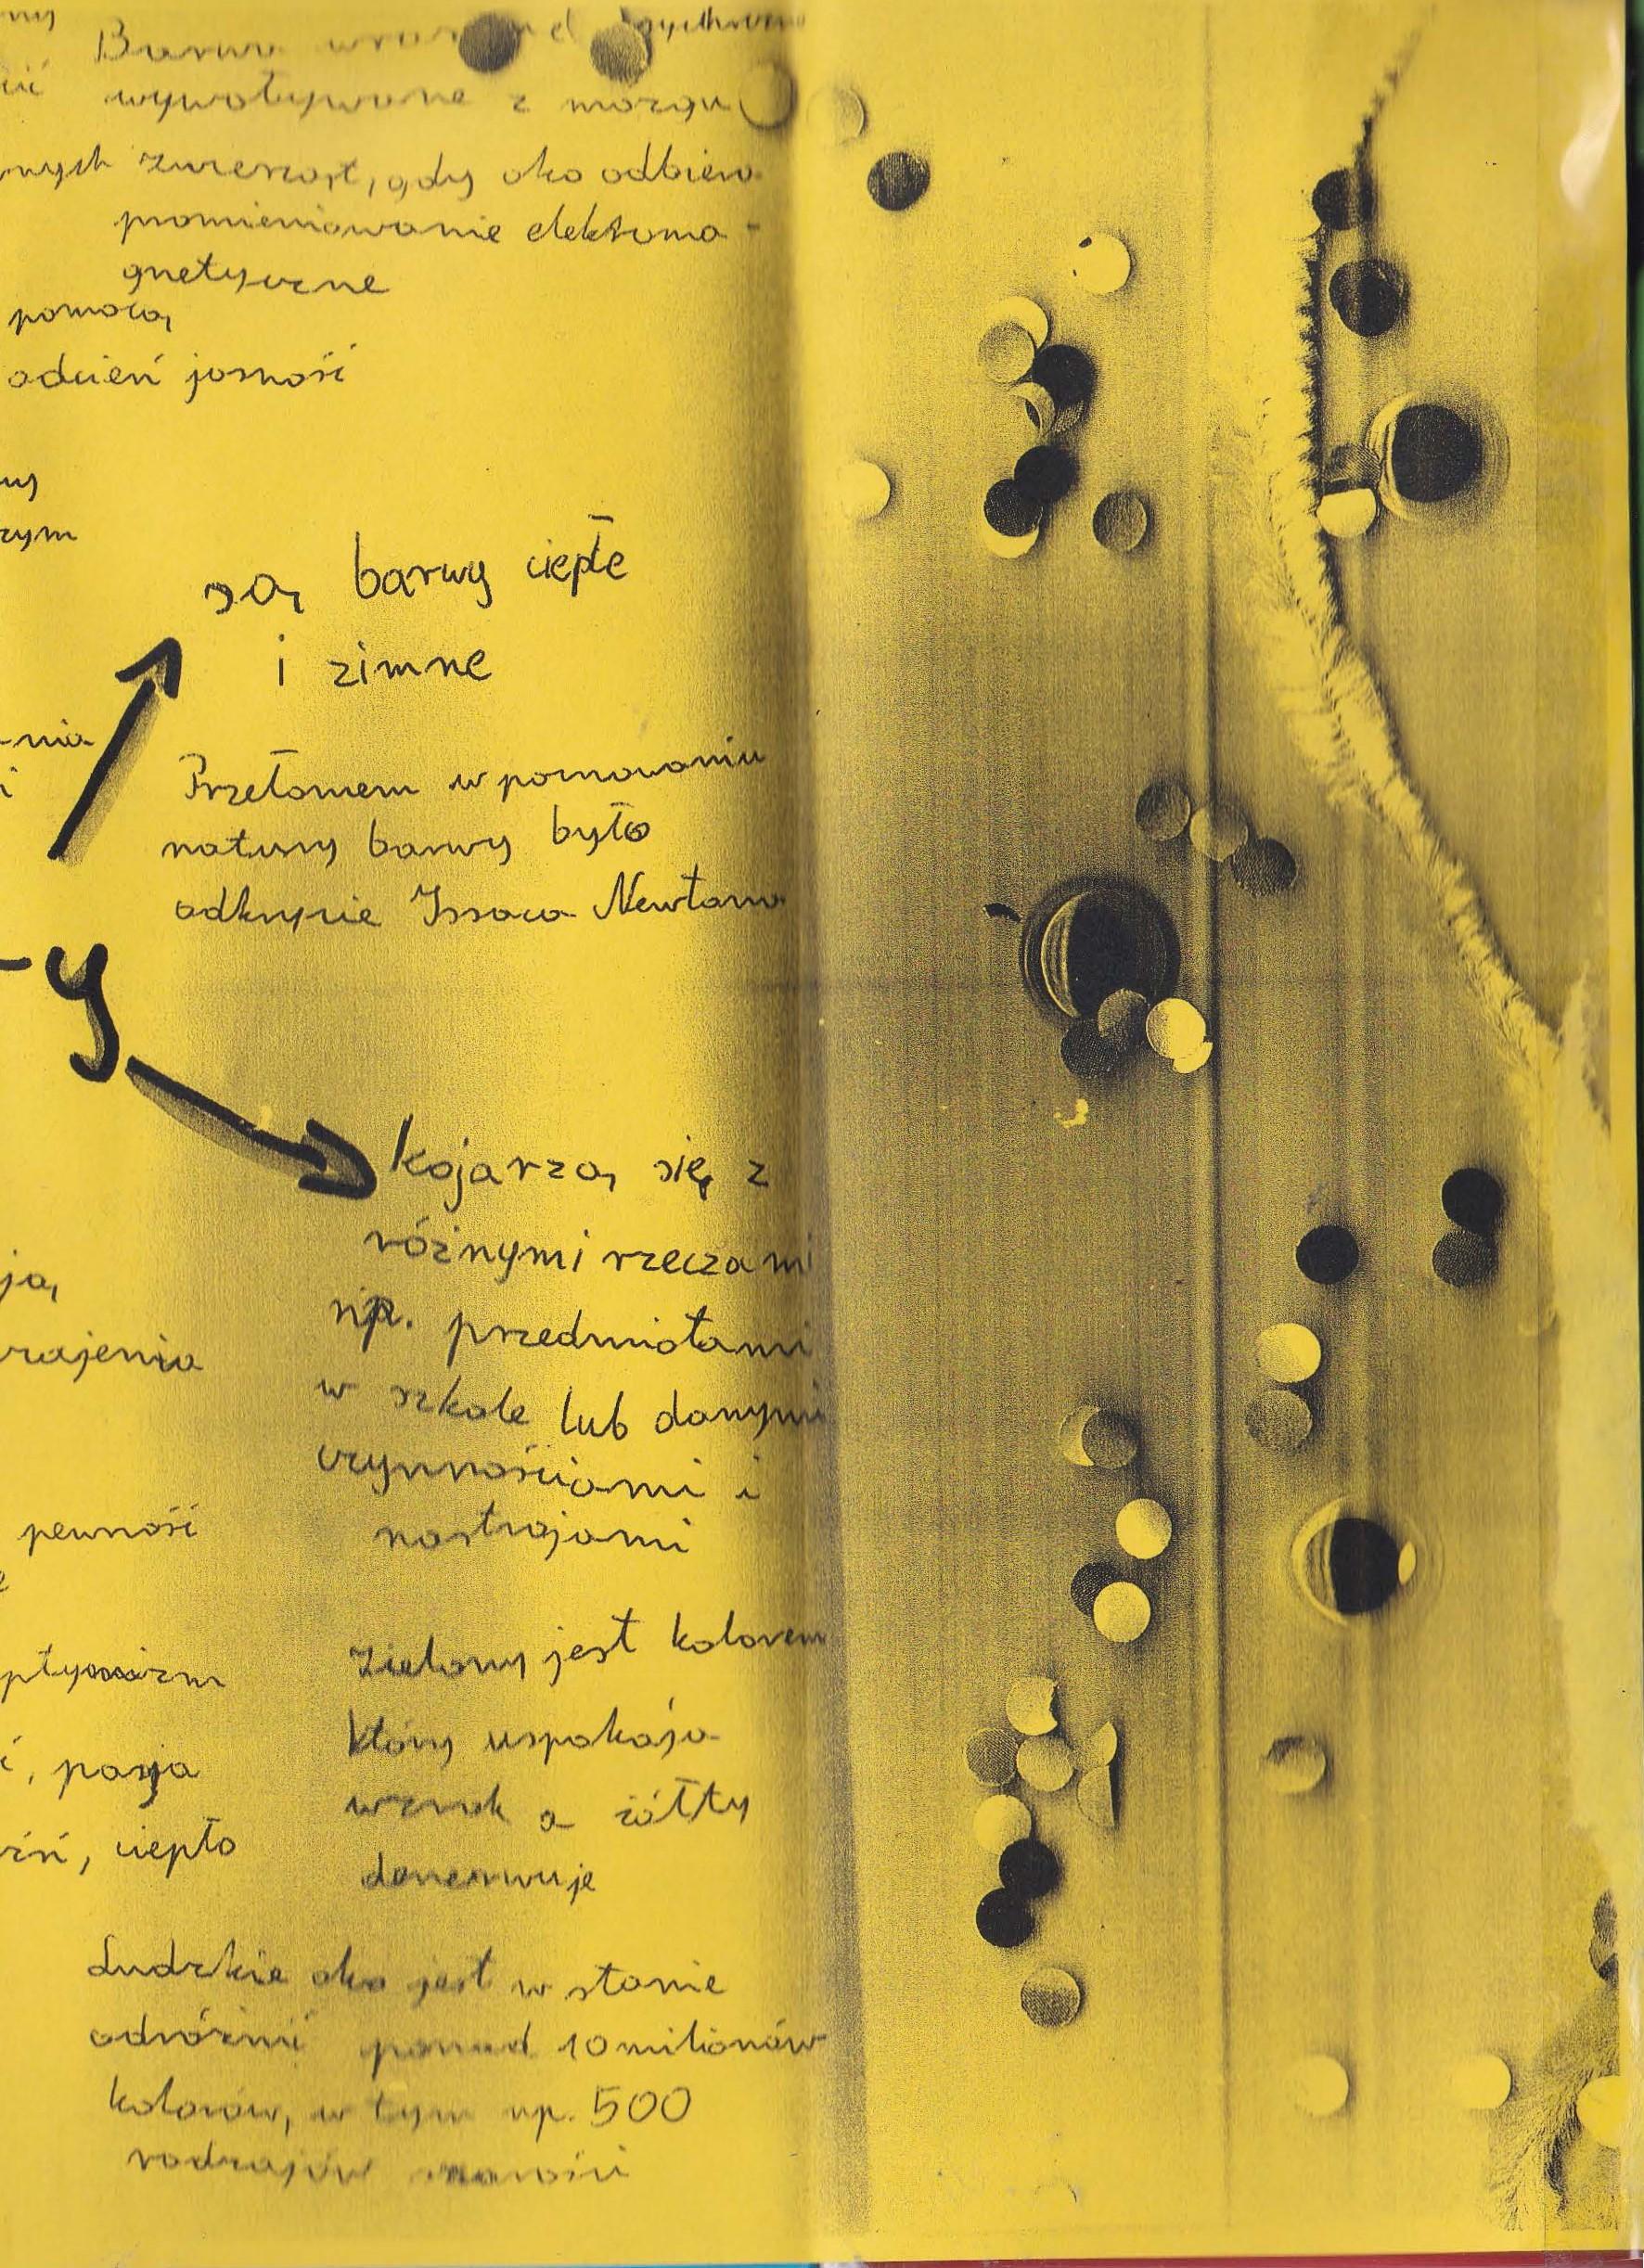 Barwa
wywoływane z mózgu
nych zwierząt, gdy oko odbiera
promieniowanie elektroma-
gnetyczne
pomocą
odcień jasność
rym
są barwy ciepłe
i zimne
-nia
i
Przełomem w poznawaniu
natury barwy było
odkrycie Issaca Newtona
-y
kojarzą się z
różnymi rzeczami
np. przedmiotami
w szkole lub danymi
czynnościami i
nastrojami
ją,
rajenia
pewność
Zielony jest kolorem
który uspokaja
wzrok a żółty
denerwuje
ptymizm
ć, pasja
źń, ciepło
Ludzkie oko jest w stanie
odróżnić ponad 10 milionów
kolorów, w tym np. 500
rodzajów szarości